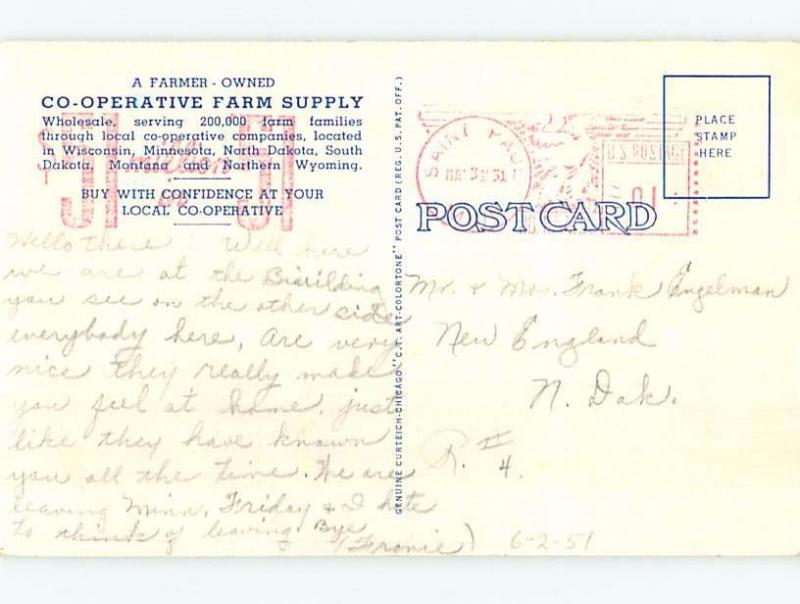 A FARMER - OWNED
CO-OPERATIVE FARM SUPPLY
Wholesale, serving 200,000 farm families
through local co-operative companies, located
in Wisconsin, Minnesota, North Dakota, South
Dakota, Montana and Northern Wyoming.
BUY WITH CONFIDENCE AT YOUR
LOCAL CO-OPERATIVE
$51 million
in 51
Hello there! Well here
we are at the Buirilding
you see on the other side
everybody here, are very
nice they really make
you feel at home. just
like they have known
you all the time. We are
leaving Minn. Friday & I hate
to think of leaving Bye
(Fronie)
6-2-51
GENUINE CURTEICH-CHICAGO "C.T. ART-COLORTONE" POST CARD (REG. U.S. PAT. OFF.)
SAINT PAUL
MAY 31 51
U.S. POSTAGE
01
PLACE
STAMP
HERE
POST CARD
Mr. & Mrs. Frank Engelman
New England
N. Dak.
R. # 4.